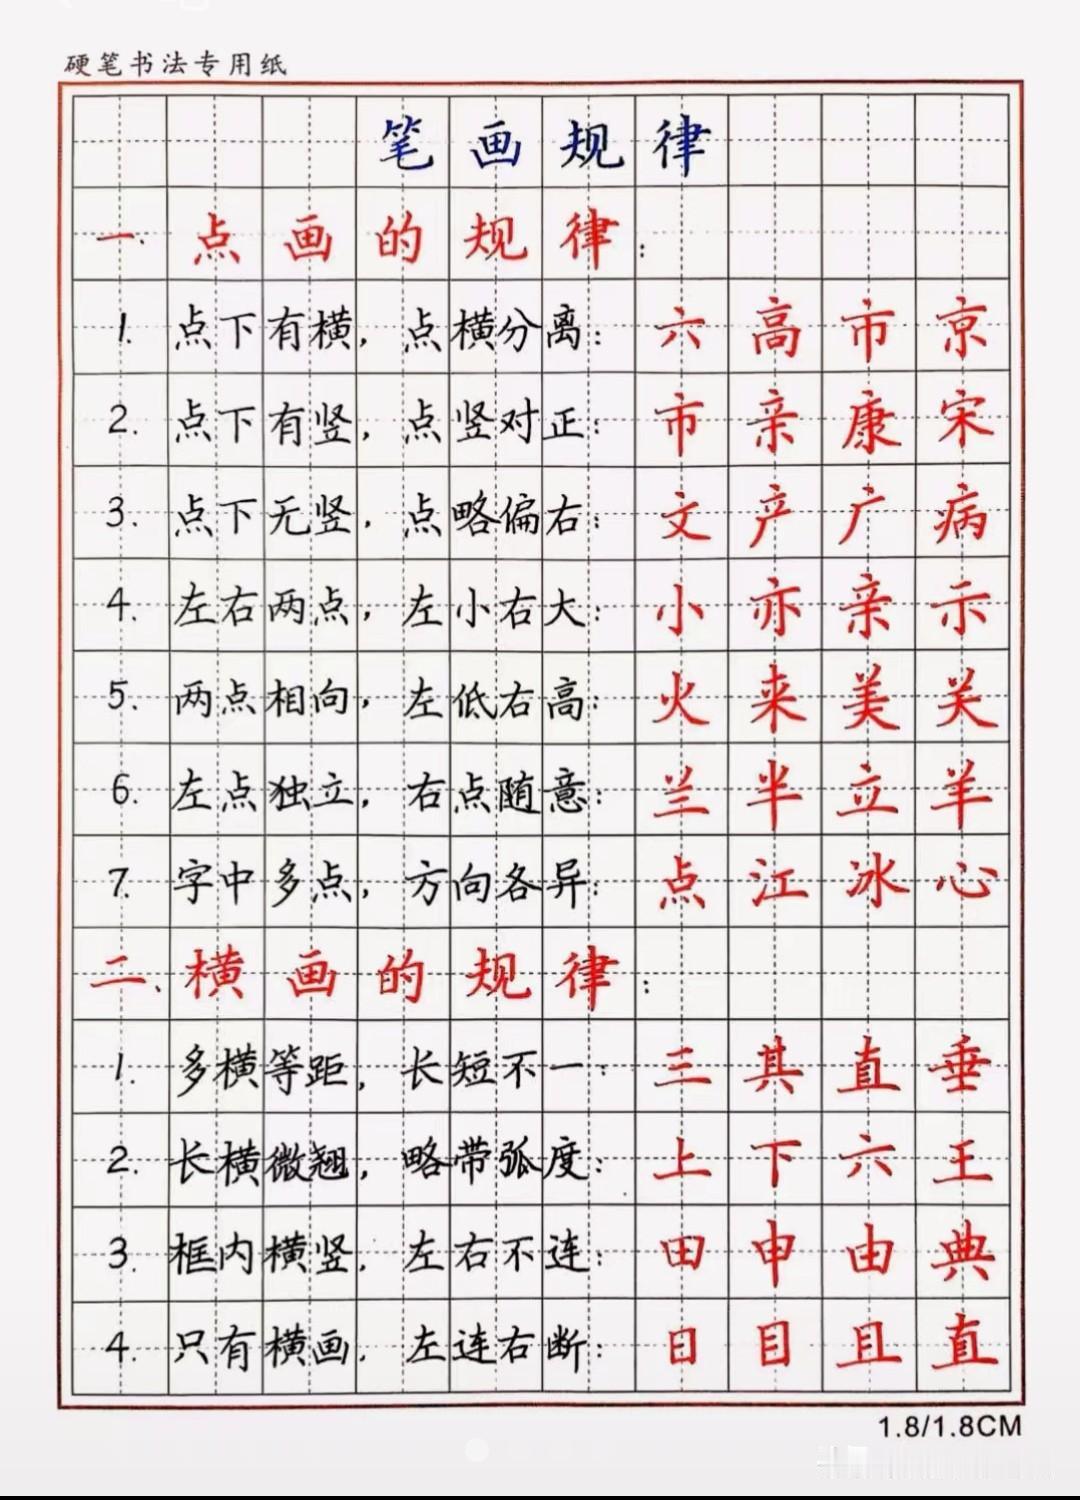 硬笔书法专用纸
笔画规律
一、点画的规律:
1. 点下有横, 点横分离: 六 高 市 京
2. 点下有竖, 点竖对正: 市 亲 康 宋
3. 点下无竖, 点略偏右: 文 产 广 病
4. 左右两点, 左小右大: 小 亦 亲 示
5. 两点相向, 左低右高: 火 来 美 关
6. 左点独立, 右点随意: 兰 半 立 羊
7. 字中多点, 方向各异: 点 江 冰 心
二、横画的规律:
1. 多横等距, 长短不一: 三 其 直 垂
2. 长横微翘, 略带弧度: 上 下 六 王
3. 框内横竖, 左右不连: 田 申 由 典
4. 只有横画, 左连右断: 日 目 且 直
1.8/1.8CM